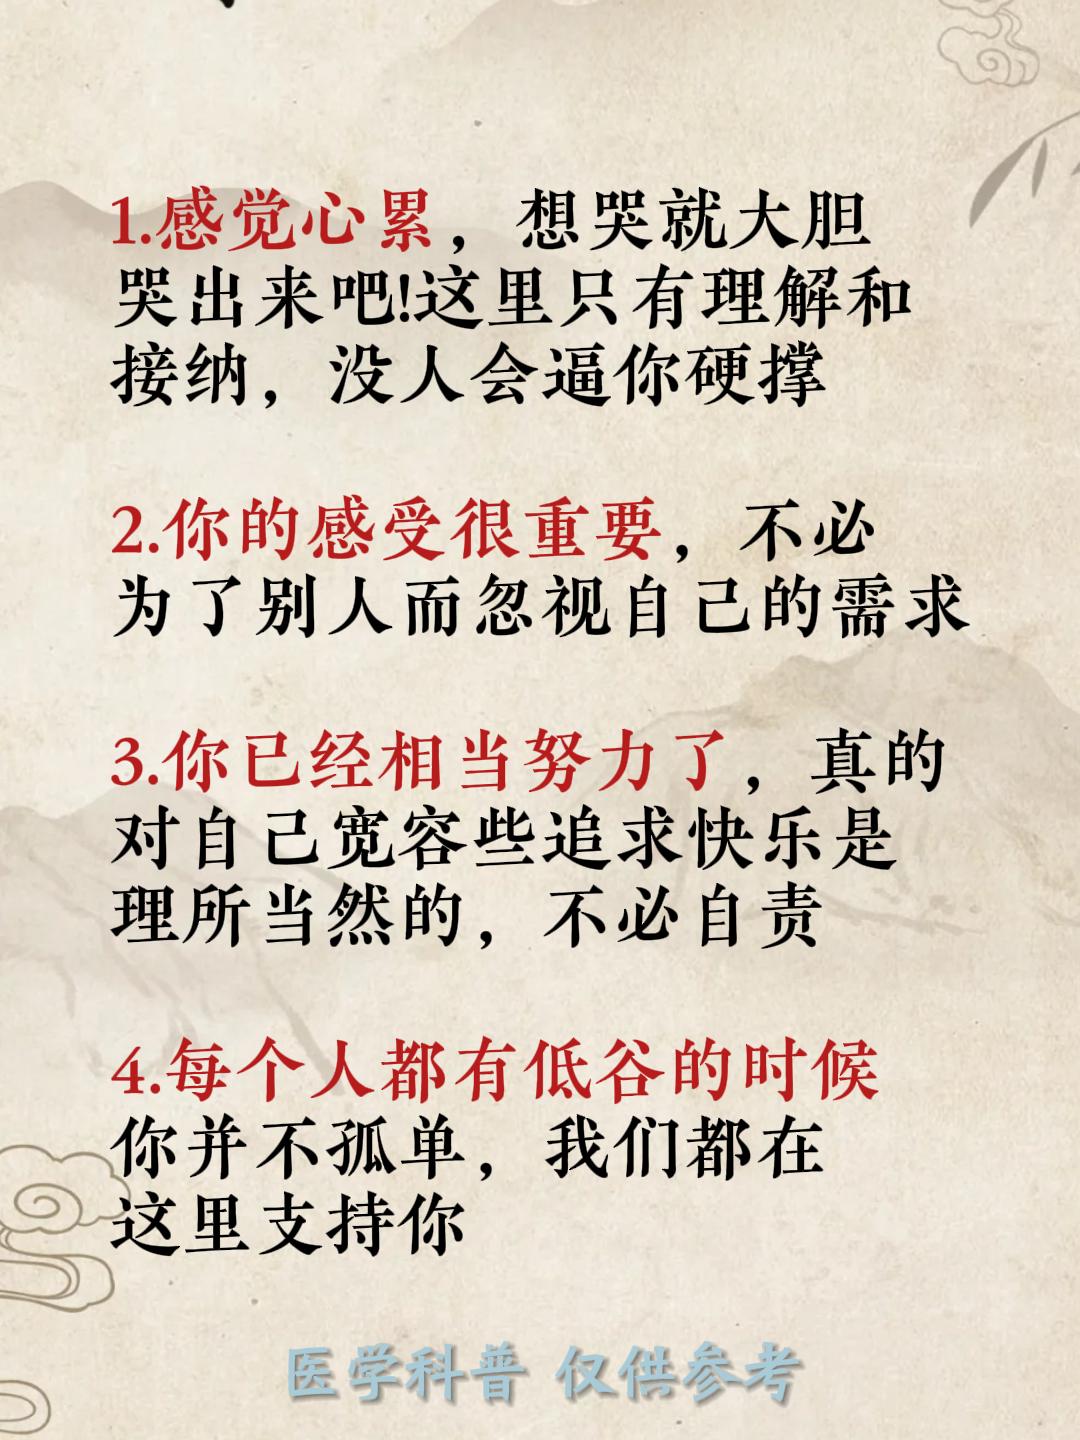 1.感觉心累，想哭就大胆
哭出来吧!这里只有理解和
接纳，没人会逼你硬撑
2.你的感受很重要，不必
为了别人而忽视自己的需求
3.你已经相当努力了，真的
对自己宽容些追求快乐是
理所当然的，不必自责
4.每个人都有低谷的时候
你并不孤单，我们都在
这里支持你
医学科普 仅供参考